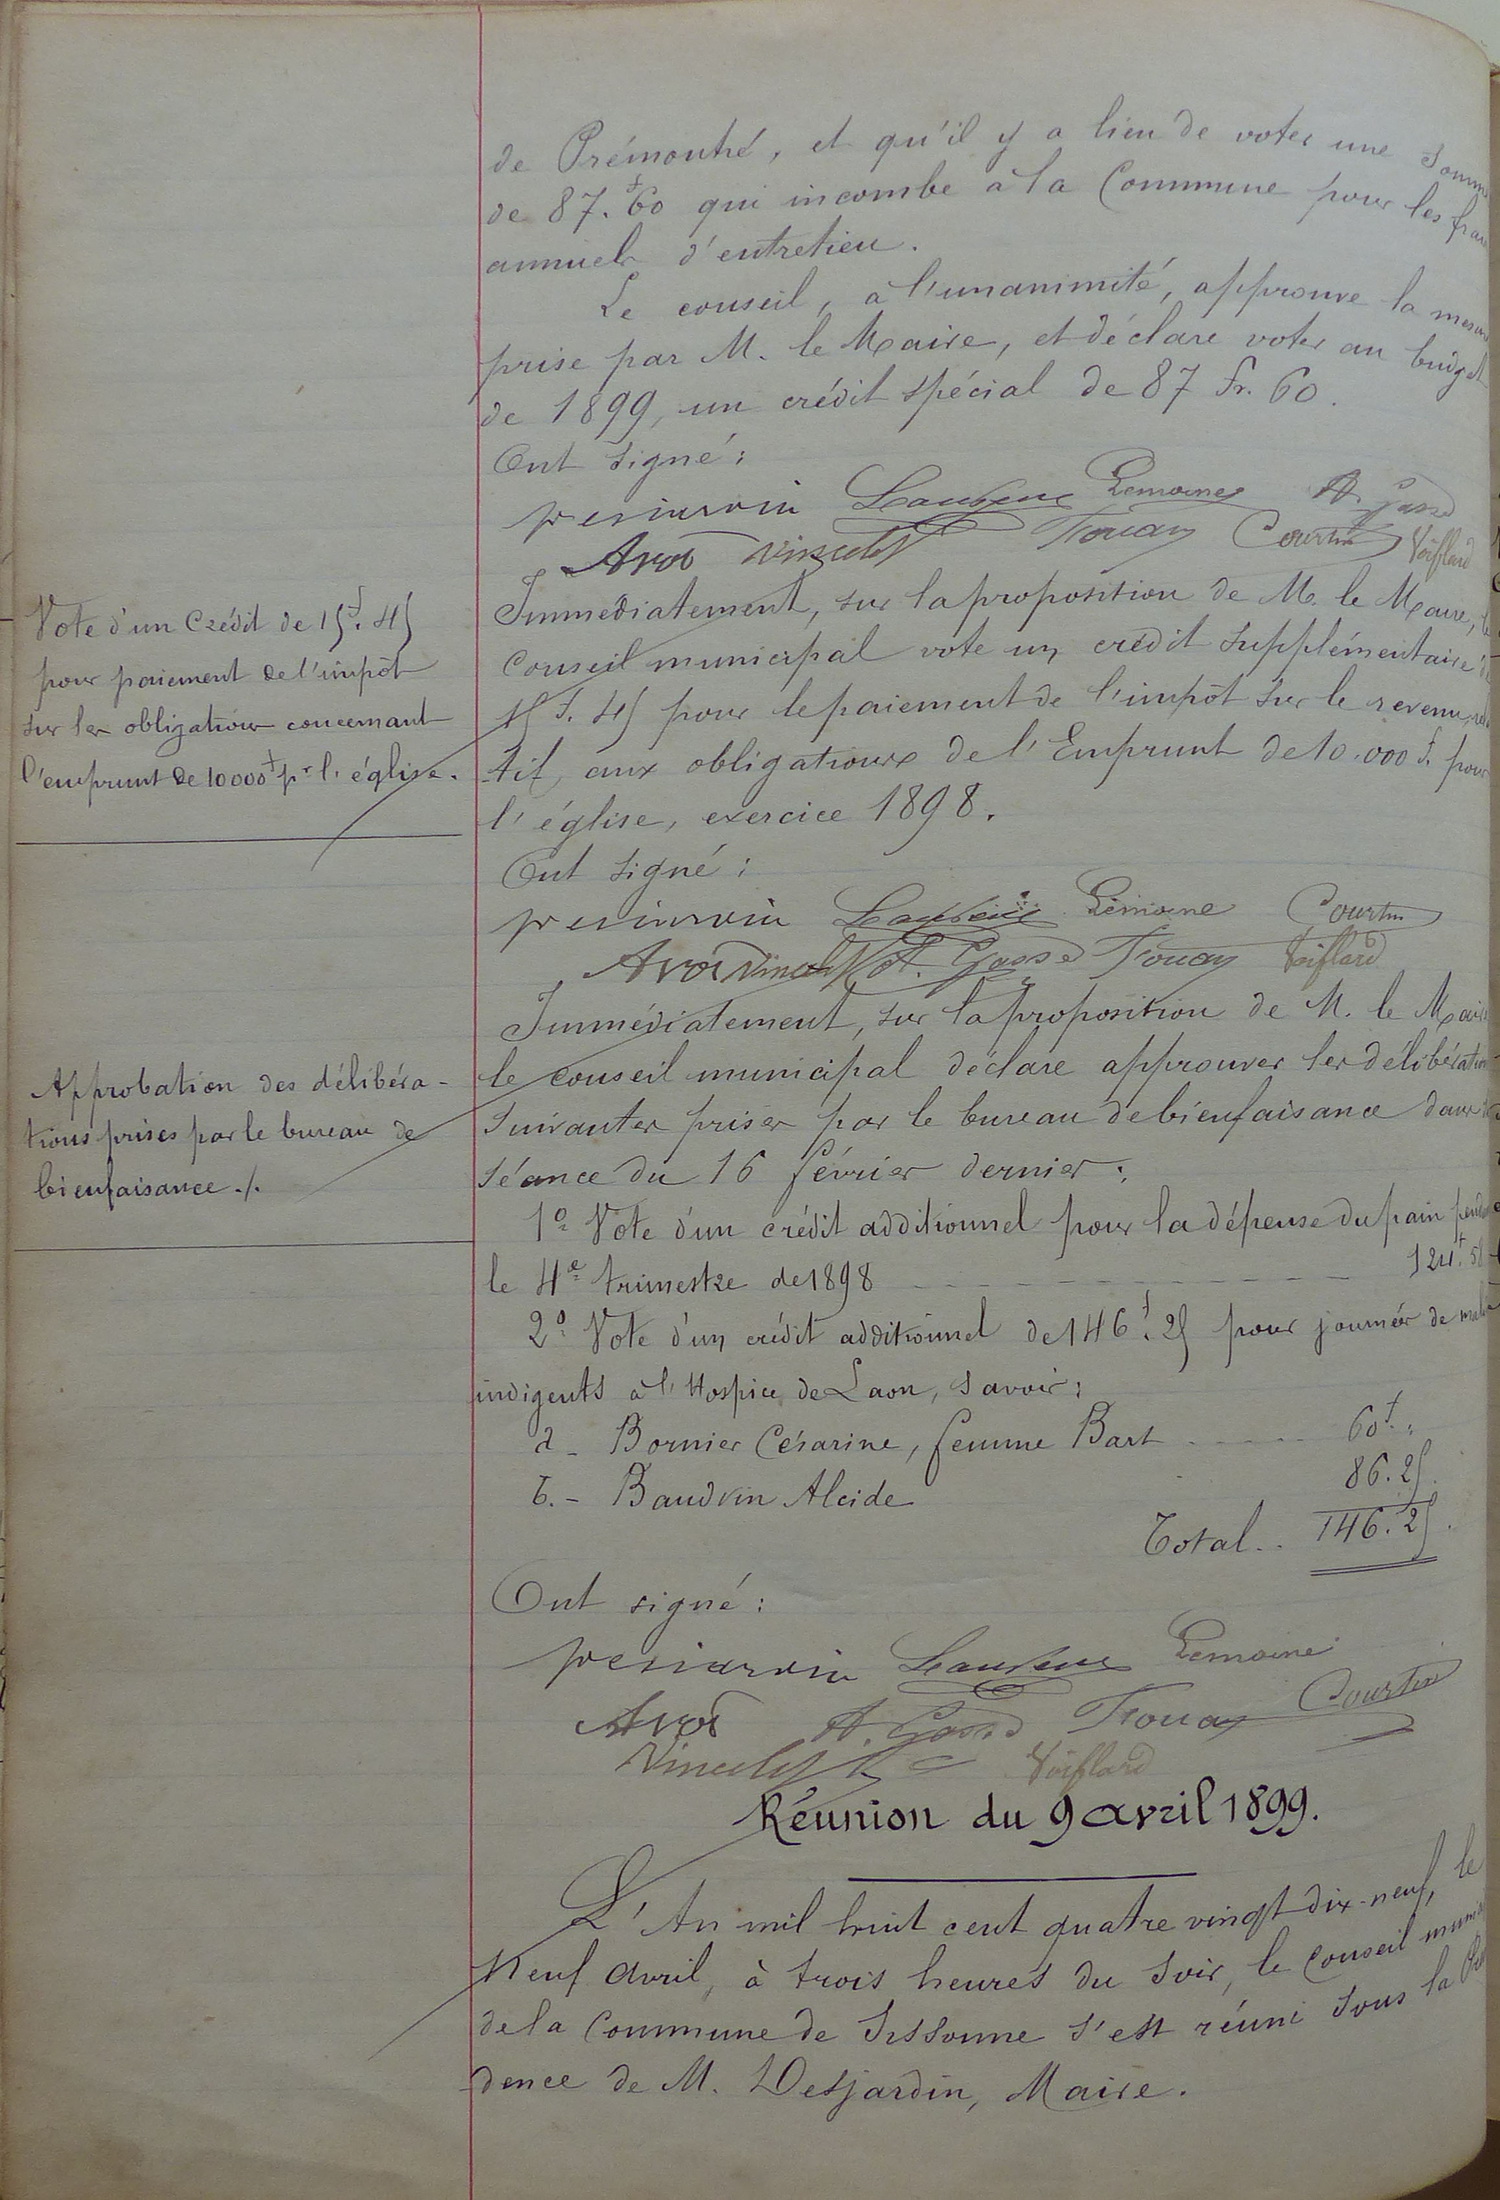 de Prémontré, et qu'il y a lieu de voter une somm
de 87.f60 qui incombe à la Commune pour les frai
annuels d'entretien.
Le conseil, à l'unanimité, approuve la mesur
prise par M. le Maire, et déclare voter au budget
de 1899, un crédit spécial de 87 fr. 60.
Ont signé :
Desjardin Lemoine A. Gosse
Trouay Courtin Voiflard
Vote d'un Crédit de 15f.45
pour paiement de l'impôt
sur les obligations concernant
l'emprunt de 10000f pr l'église.
Immédiatement, sur la proposition de M. le Maire, le
Conseil municipal vote un crédit supplémentaire de
15 f. 45 pour le paiement de l'impôt sur le revenu, rela
tif, aux obligations de l'Emprunt de 10.000 f. pour
l'église, exercice 1898.
Ont signé :
Desjardin Lemoine Courtin
A. Gosse Trouay Voiflard
Approbation des délibéra-
tions prises par le bureau de
bienfaisance ./.
Immédiatement, sur la proposition de M. le Maire
le conseil municipal déclare approuver les délibération
suivantes prises par le bureau de bienfaisance dans sa
séance du 16 février dernier :
1º Vote d'un crédit additionnel pour la dépense du pain pendant
le 4e trimestre de 1898 124f.5
2º Vote d'un crédit additionnel de 146f.25 pour journées de malad
indigents à l'Hospice de Laon, savoir :
a - Bornier Césarine, femme Bart 60f."
b. - Baudvin Alcide 86.25.
Total.. 146.25.
Ont signé :
Desjardin Lemoine
A. Gosse Trouay Courtin
Voiflard
Réunion du 9 avril 1899.
L'An mil huit cent quatre vingt dix-neuf, le
neuf Avril, à trois heures du soir, le Conseil munici
de la Commune de Sissonne s'est réuni sous la Pré
dence de M. Desjardin, Maire.